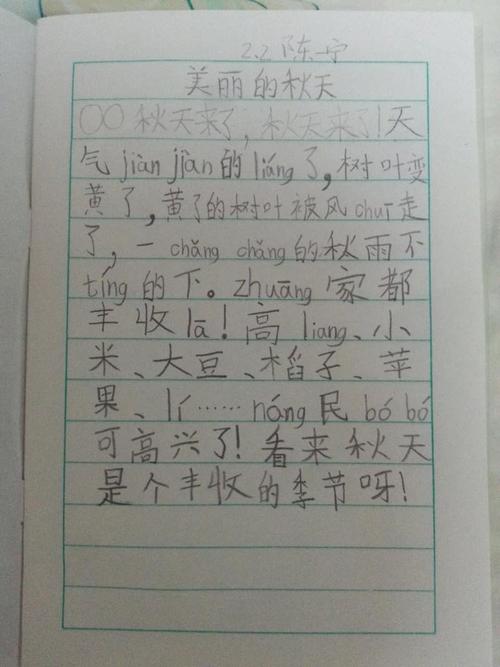 2.2 陈一宁
美丽的秋天
○○秋天来了,秋天来了!天
气jiàn jiàn的liáng了,树叶变
黄了,黄了的树叶被风chuī走
了,一chǎng chǎng的秋雨不
tíng的下。zhuāng家都
丰收lā!高liang、小
米、大豆、稻子、苹
果、lí……nóng民bó bó
可高兴了!看来秋天
是个丰收的季节呀!